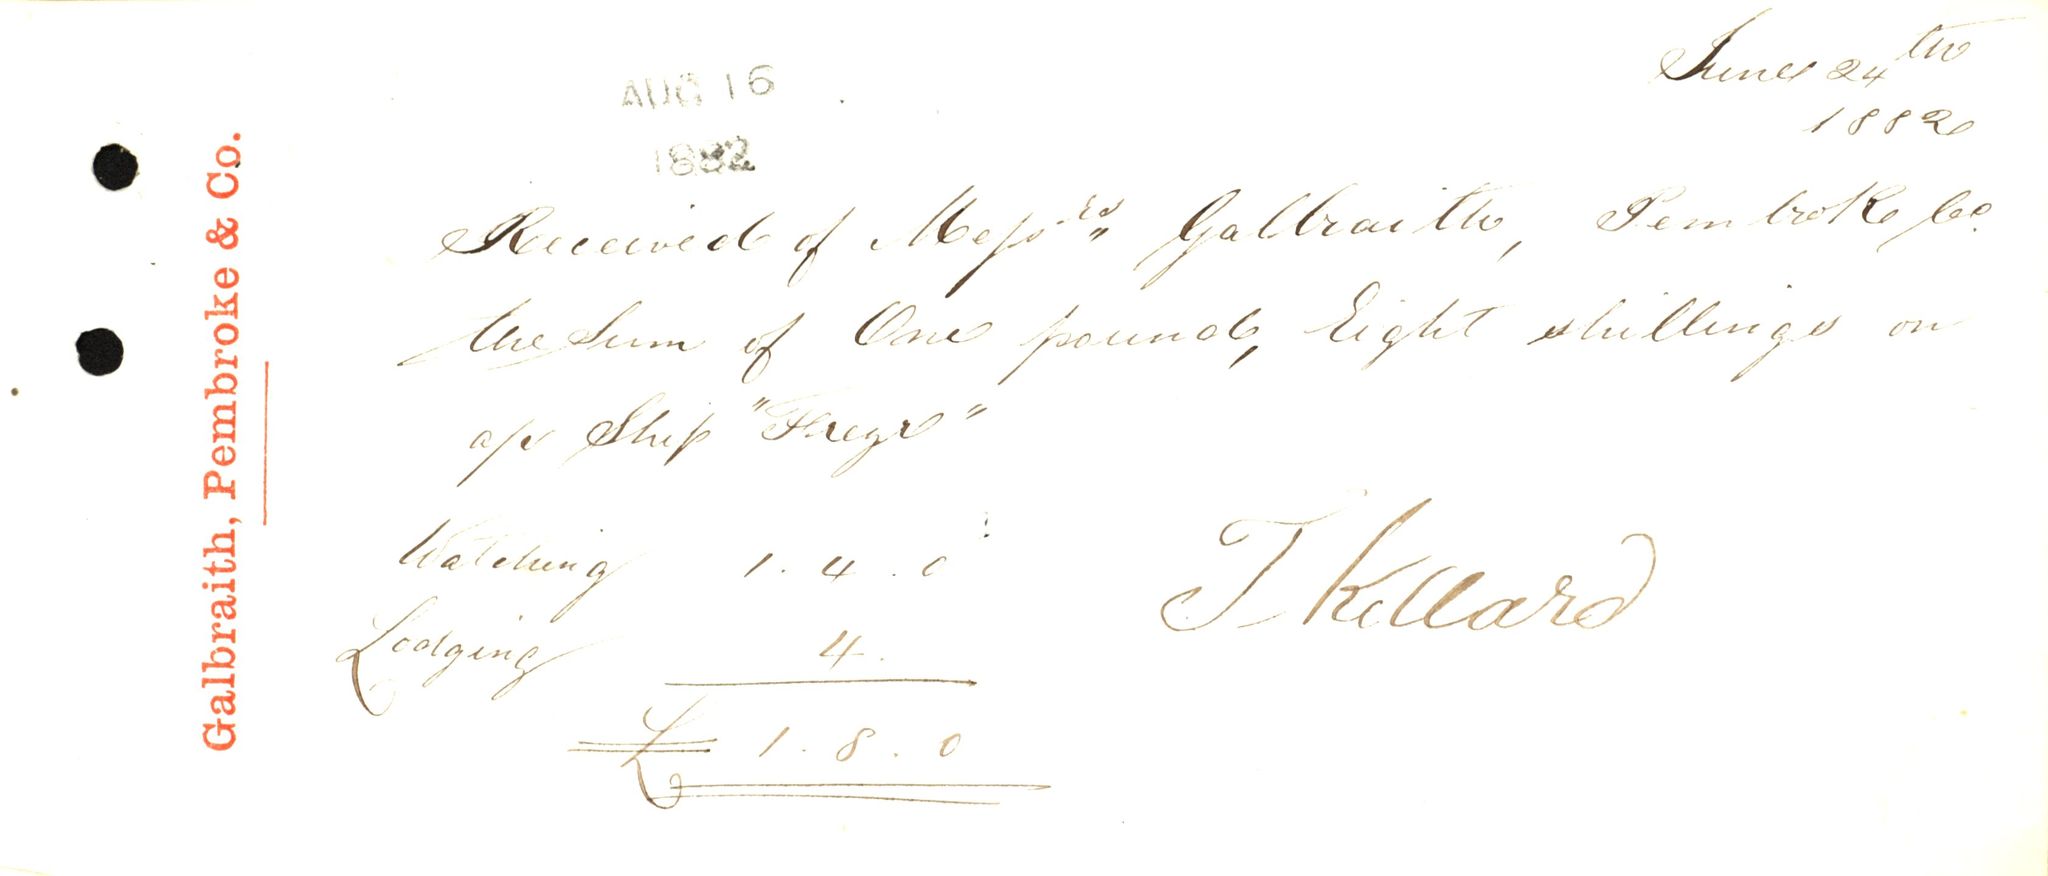 Galbraith, Pembroke & Co.
AUG 16
1882
June 24th
1882
Received of Messrs Galbraith, Pembroke Co.
the Sum of One pound, Eight shillings on
a/c Ship "Freyr"
Watching 1. 4. 0
Lodging 4.
£ 1. 8. 0
T Kellard